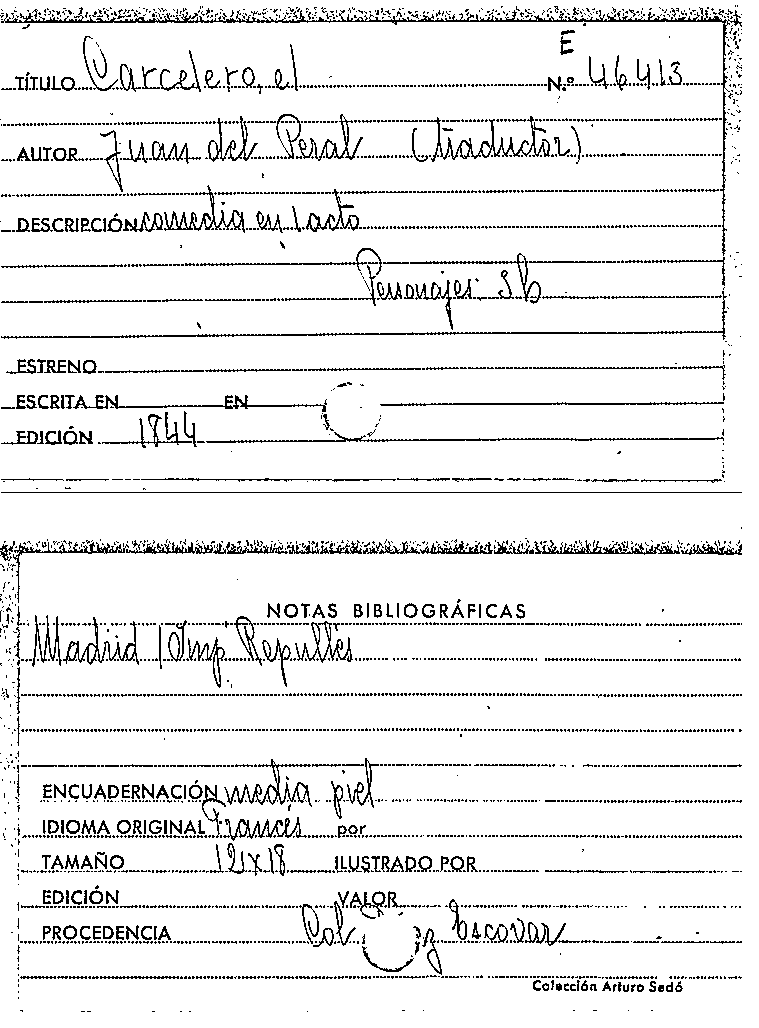 E
TÍTULO Carcelero, el N.º 46413
AUTOR Juan del Peral (traductor)
DESCRIPCIÓN comedia en 1 acto
Personajes: 3 b
ESTRENO
ESCRITA EN EN
EDICIÓN 1844
NOTAS BIBLIOGRÁFICAS
Madrid / Imp. Repullés
ENCUADERNACIÓN media piel
IDIOMA ORIGINAL Francés por
TAMAÑO 12x18 ILUSTRADO POR
EDICIÓN VALOR
PROCEDENCIA Col Escovar
Colección Arturo Sedó